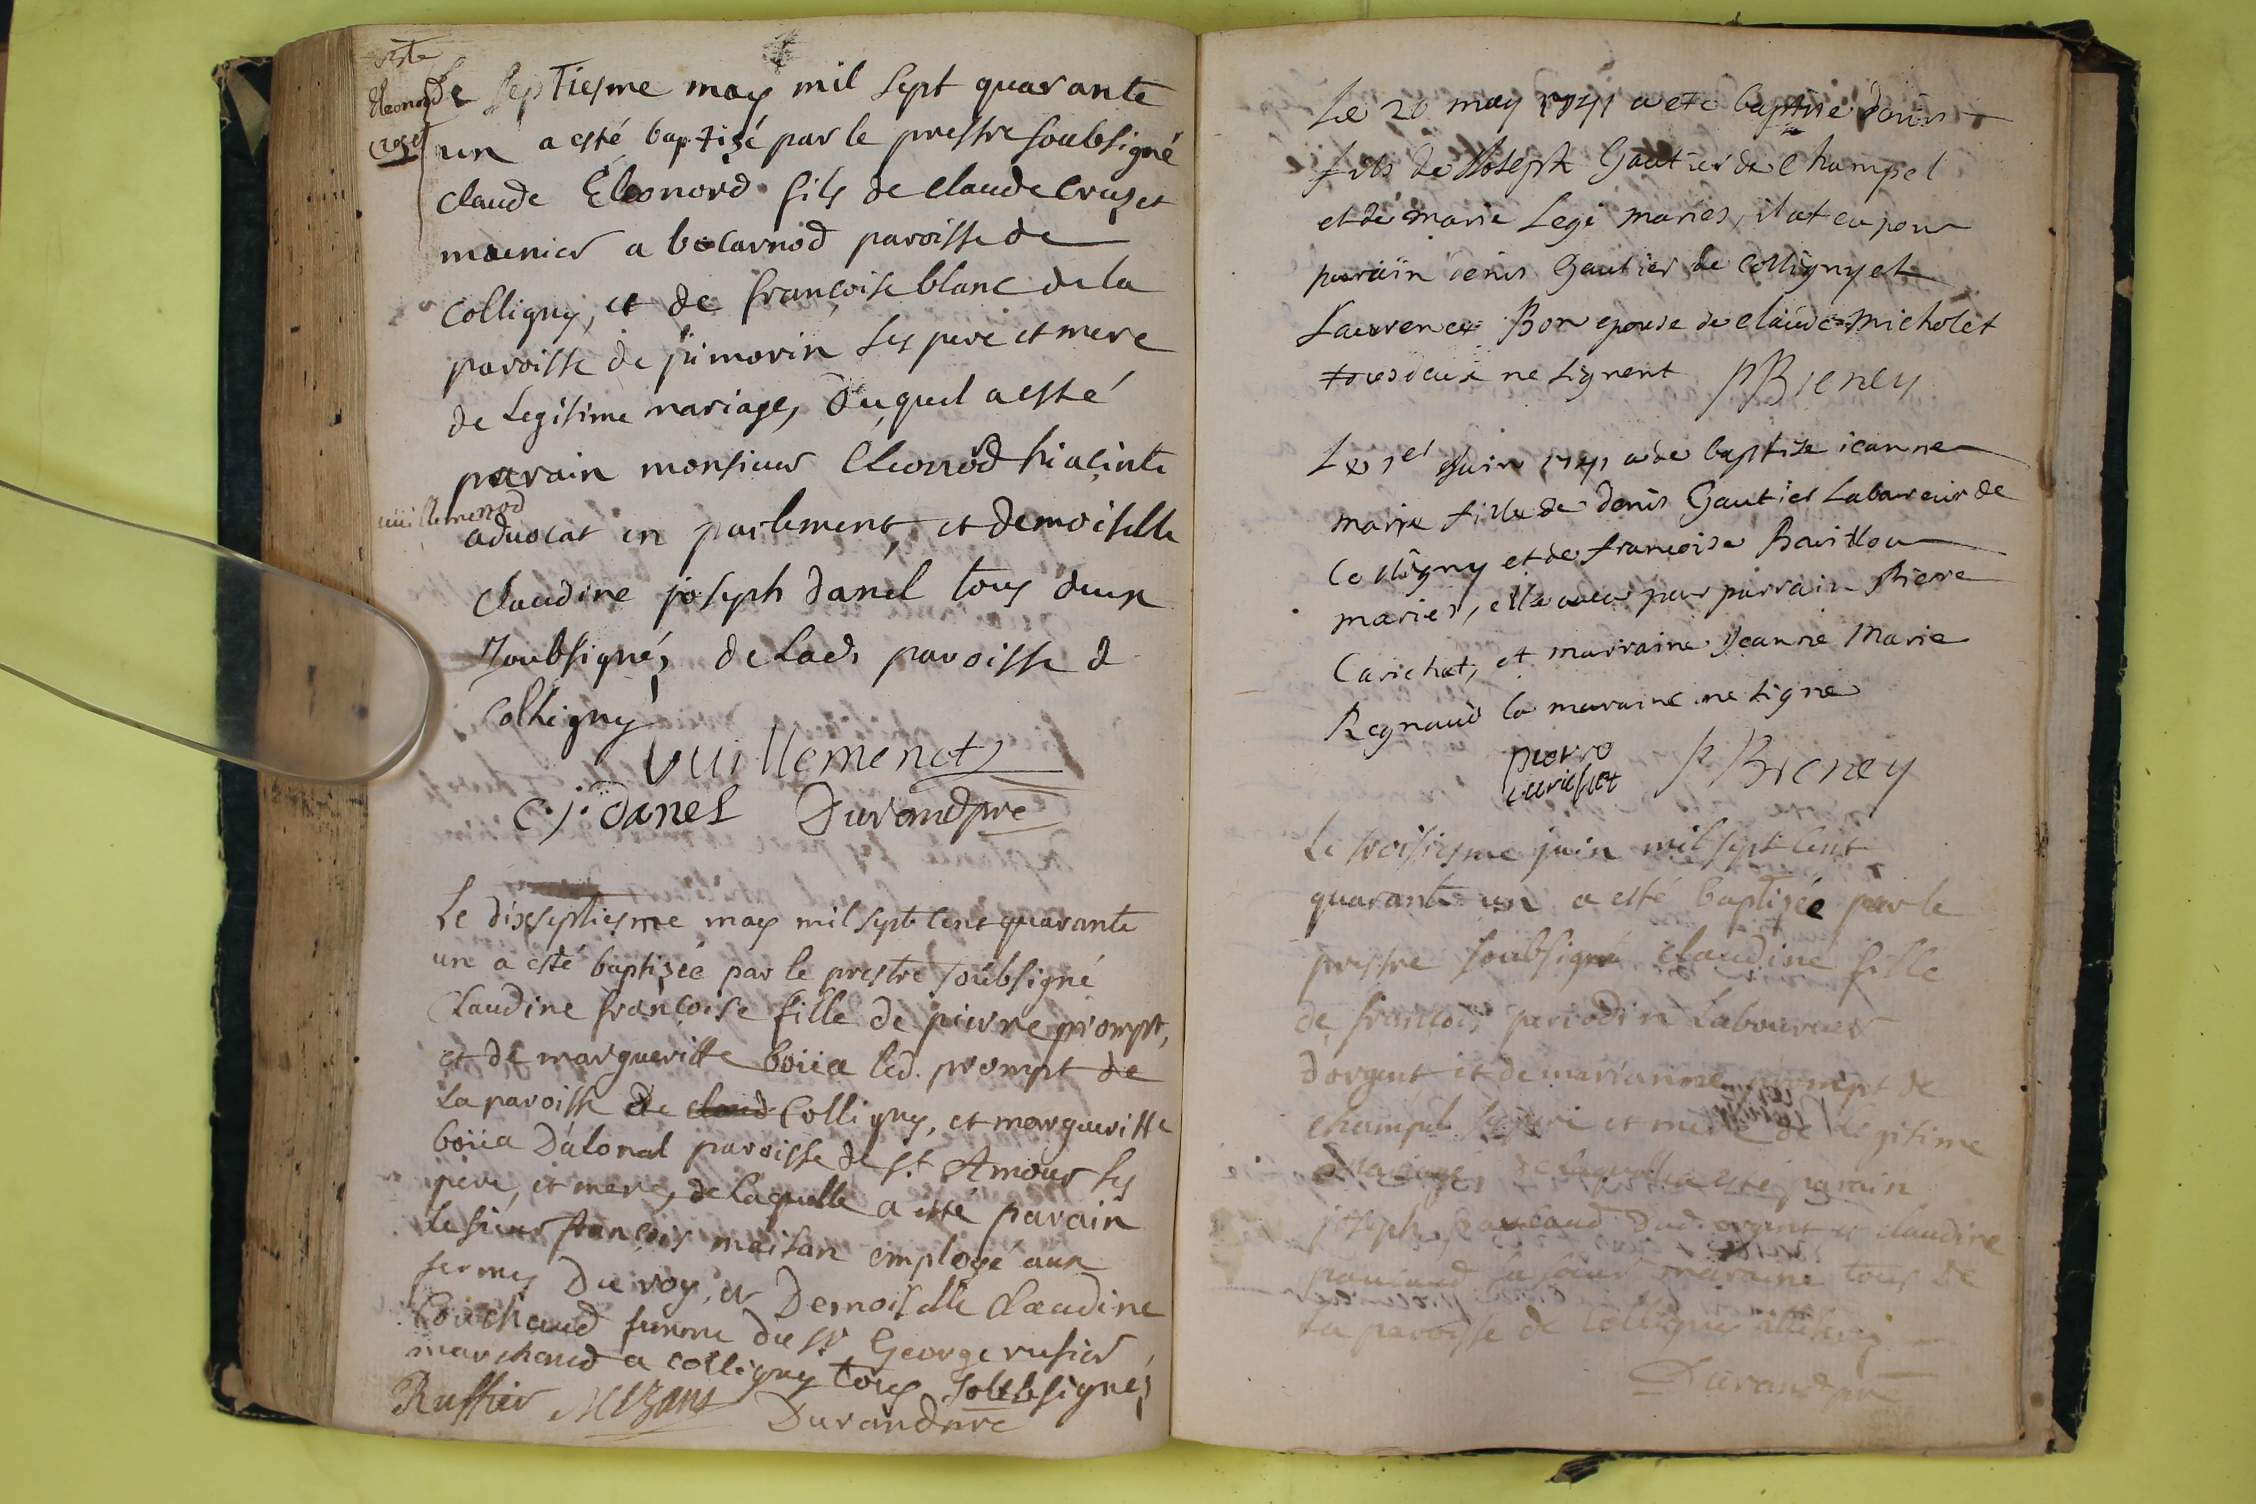 Le septiesme may mil sept quarante
un a esté baptizé par le prestre soubsigné
claude Éleonord fils de claude cruzet
meunier a bocarnod paroisse de
Colligny, et de françoise blanc de la
paroisse de jimorin ses pere et mere
de Legitime mariage, Duquel a esté
parain monsieur Eleonord hiacinte
vuillemenod
advocat en parlement, et demoiselle
claudine joseph danel tous deux
soubsignés de Lad. paroisse d
Colligny
Vuillemenot
C. j. danel Durand pre
Le dixseptiesme may mil sept cent quarante
un a esté baptizée par le prestre soubsigné
Claudine françoise fille de pierre prompt,
et de margueritte boüa led. prompt de
La paroisse de Colligny, et margueritte
boüa Dalonal paroisse de St Amour ses
pere, et mere, de Laquelle a esté parain
Le sieur françois maisan employé aux
fermes Du roy, et Demoiselle claudine
Couchaud femme du Sr George rufier
marchand a colligny tous soubsignés
Ruffier Mezans Durand pre
Le 20 may 1741 a ete baptise denis
fils de Joseph Gautier de Champel
et de marie Legé mariés, il at eu pour
parain denis Gautier de Colligny et
Laurence Bon epouse de claude Micholet
tous deux ne signent P Bieney
Le 1er Juin 1741 a ete baptise jeanne
marie fille de denis Gautier Laboureur de
Colligny et de françoise Bouillou
mariés, elle a eu pour parrain Pierre
Carichat, et marraine Jeanne Marie
Regnaud la maraine ne signe
pierre carichat P Bieney
Le troisiesme juin mil sept cent
quarante un a esté baptizée par le
prestre soubsigné claudine fille
de françois periodin Laboureur
d'orgent et de marianne prompt de
champel ses pere et mere de Legitime
mariage, de laquelle a esté parain
joseph pauland dud. orgent et claudine
pauland sa soeur maraine tous de
La paroisse de Colligny
Durand pre